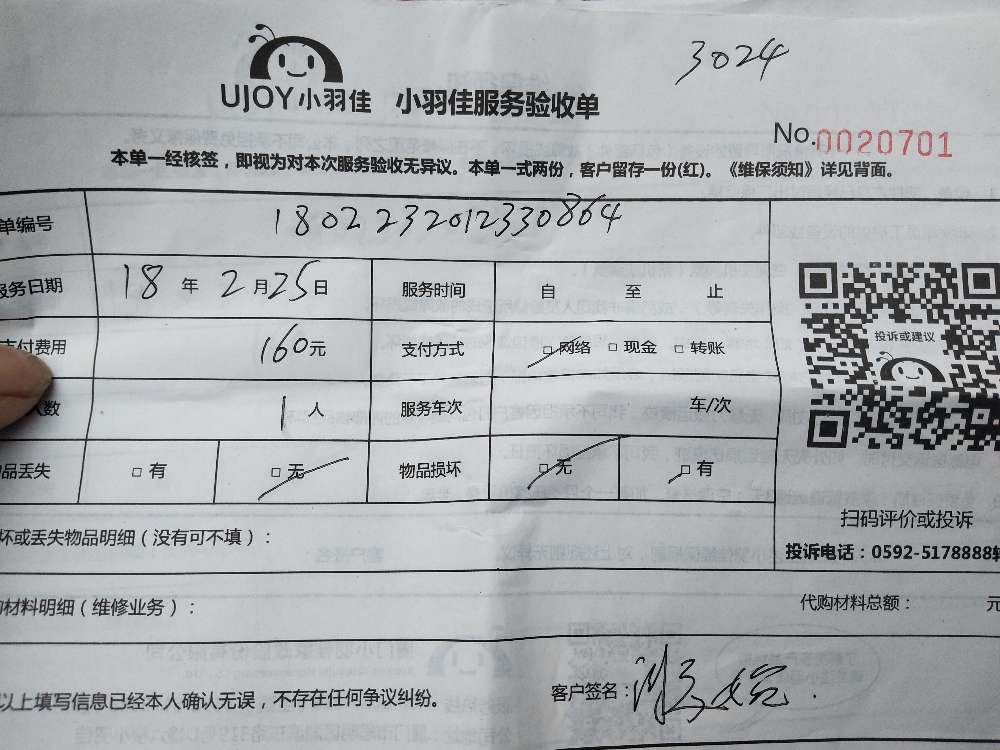 3024
UJOY小羽佳 小羽佳服务验收单
No.0020701
本单一经核签，即视为对本次服务验收无异议。本单一式两份，客户留存一份(红)。《维保须知》详见背面。
单编号 1802232012330864
服务日期 18 年 2 月 25 日 服务时间 自 至 止
支付费用 160元 支付方式 □ 网络 □ 现金 □ 转账
人数 1 人 服务车次 车/次
品丢失 □ 有 □ 无 物品损坏 □ 无 □ 有
投诉或建议
扫码评价或投诉
投诉电话：0592-5178888转
坏或丢失物品明细（没有可不填）：
购材料明细（维修业务）： 代购材料总额： 元
以上填写信息已经本人确认无误，不存在任何争议纠纷。 客户签名：